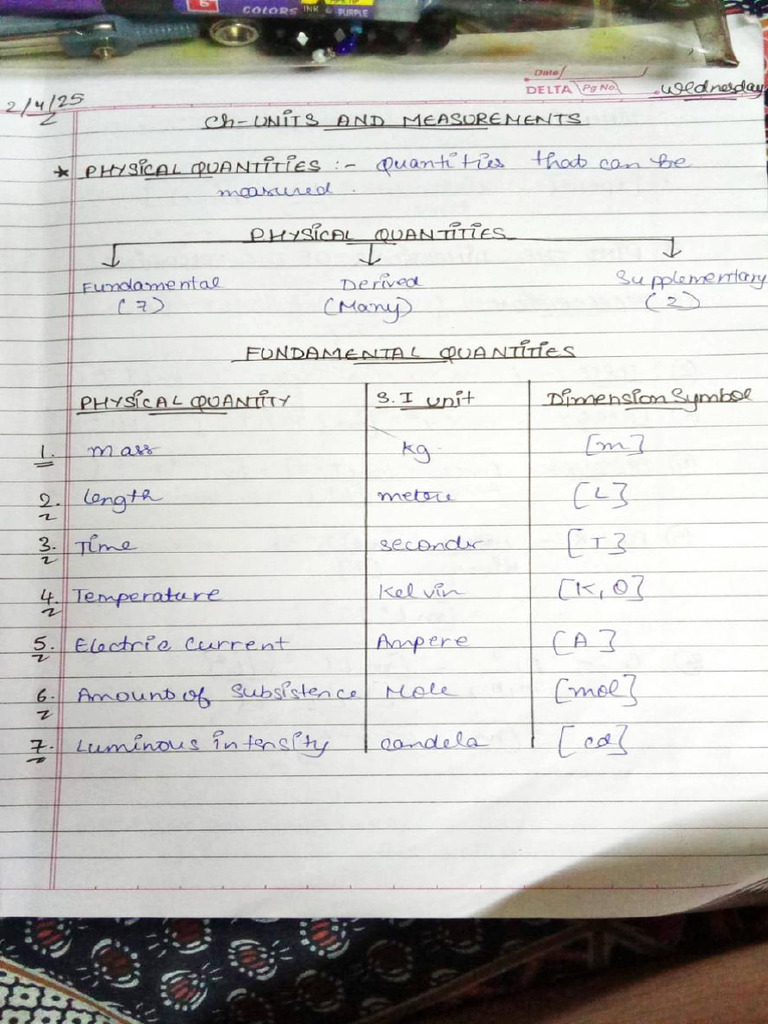 COLORS INK & PURPLE
Date
DELTA Pg No.
2/4/25 Wednesday
Ch-UNITS AND MEASUREMENTS
* PHYSICAL QUANTITIES :- Quantities that can be
measured.
PHYSICAL QUANTITIES
Fundamental Derived Supplementary
(7) (Many) (2)
FUNDAMENTAL QUANTITIES
PHYSICAL QUANTITY S.I unit Dimension Symbol
1. mass kg [m]
2. Length metore [L]
3. Time seconds [T]
4. Temperature Kelvin [K, θ]
5. Electric Current Ampere [A]
6. Amount of Subsistence Mole [mol]
7. Luminous intensity candela [cd]